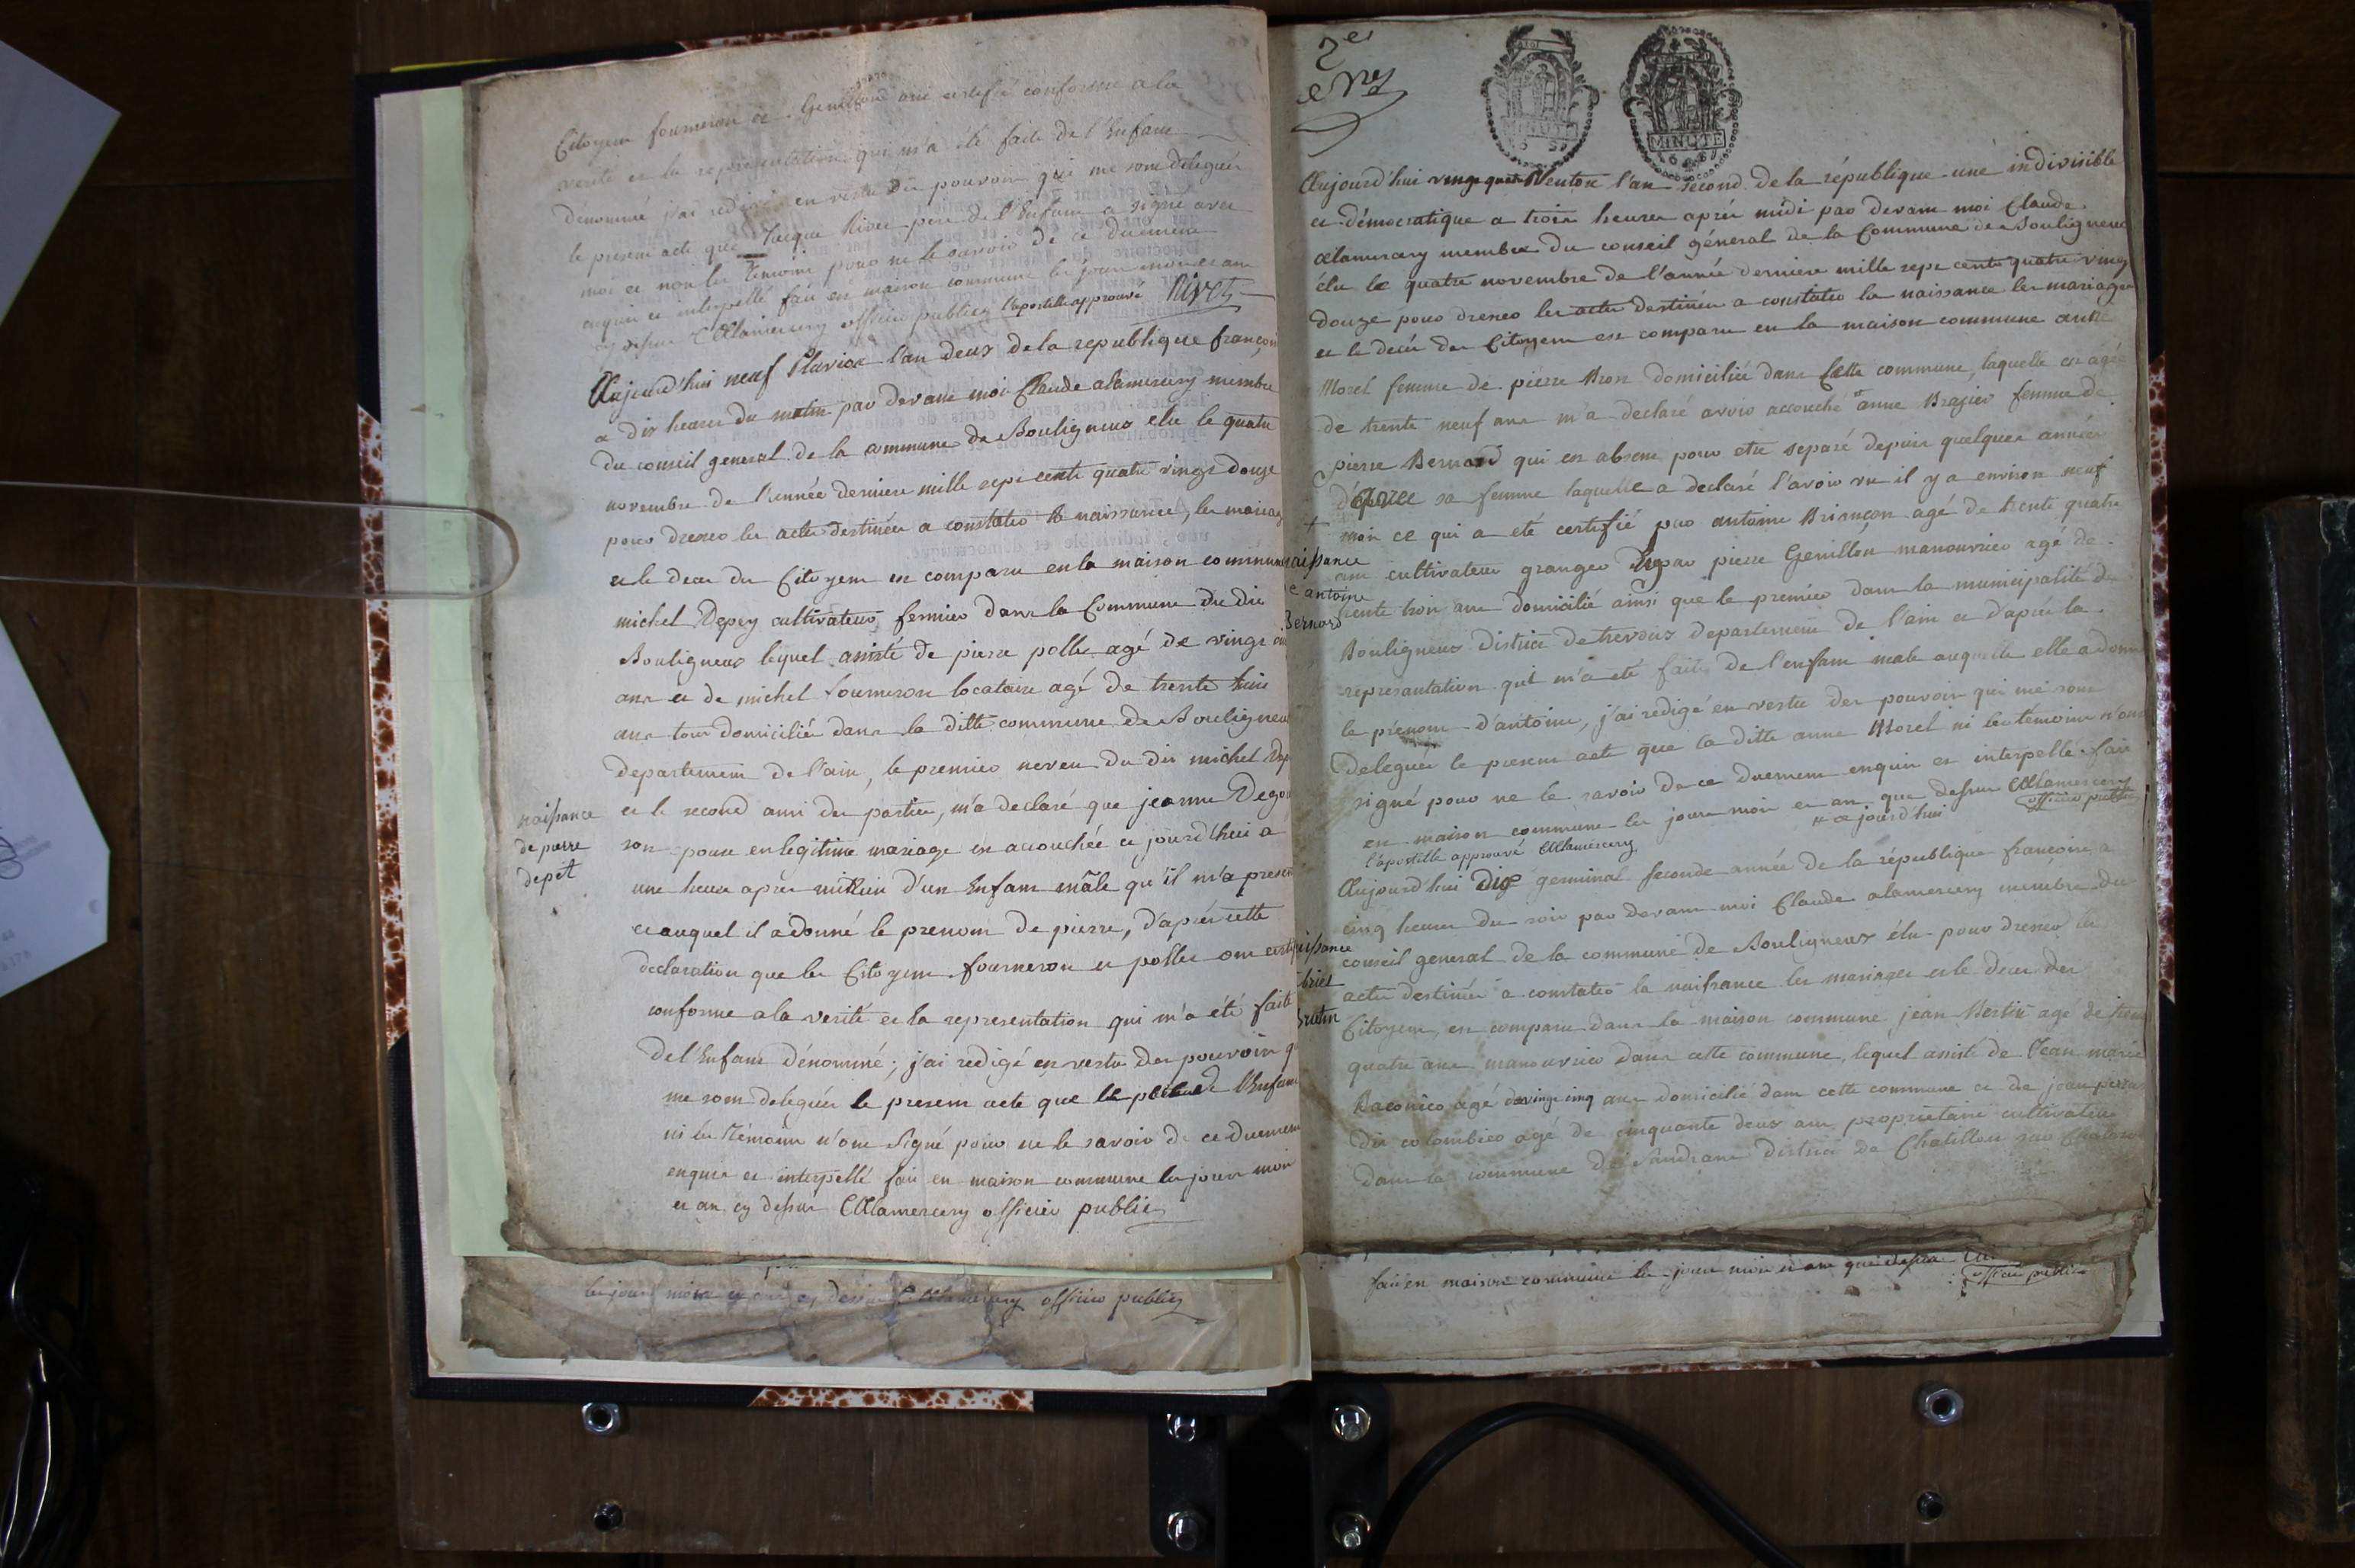 Citoyens fourneron et Genillon ont certifié conforme a la
verité et la representation qui m'a été faite de l'Enfant
dénommé j'ai redigé en vertu des pouvoirs qui me sont delegués
le present acte que Jacque Rivet pere de l'Enfant a signé avec
moi et non les témoins pour ne le savoir de ce duement
enquis et interpellé fait en maison commune les jours mois et an
cy dessus CAlamercery officier public l'apostille approuvé Rivet
Aujourd'hui neuf Pluviose l'an deux de la republique françoise
a dix heures du matin par devant moi Claude alamercery membre
du conseil general de la commune de Bouligneux elu le quatre
novembre de l'année derniere mille sept cents quatre vingt douze
pour dresser les actes destinés a constater la naissance, les mariages
et le deces des Citoyens est comparu en la maison commune
michel Depey cultivateur, fermier dans la Commune du dit
Bouligneux lequel assisté de pierre pollet agé de vingt
ans et de michel fourneron locataire agé de trente huit
ans tous domiciliés dans la ditte commune de Bouligneux
departement de l'ain, le premier neveu du dit michel
et le second ami des parties, m'a declaré que jeanne
naissance
de pierre
depét
son epouse en legitime mariage est accouchée ce jourd'hui a
une heure après minuit d'un Enfant mâle qu'il m'a presenté
et auquel il a donné le prenom de pierre, d'après cette
declaration que les Citoyens fourneron et pollet ont certifié
conforme a la verité et la representation qui m'a été faite
de l'Enfant dénommé; j'ai redigé en vertu des pouvoirs qui
me sont delegués le present acte que le pere de l'Enfant
ni les Témoins n'ont signé pour ne le savoir de ce duement
enquis et interpellé fait en maison commune les jours mois
et an cy dessus CAlamercery officier public
les jours mois et an cy dessus CAlamercery officier public
2e
MINUTE
MINUTE
Aujourd'hui vingt quatre Ventose l'an second de la république une indivisible
et démocratique a trois heures après midi par devant moi Claude
alamercery membre du conseil géneral de la Commune de Bouligneux
élu le quatre novembre de l'année derniere mille sept cents quatre vingt
douze pour dresser les actes destinés a constater la naissance les mariages
et le decés des Citoyens est comparu en la maison commune anne
Morel femme de pierre Bron domiciliée dans cette commune, laquelle est agée
de trente neuf ans m'a declaré avoir accouché anne Brazier femme de
pierre Bernard qui est absent pour etre separé depuis quelques années
d'avec sa femme laquelle a declaré l'avoir vu il y a environ neuf
mois ce qui a eté certifié par antoine Briançon agé de trente quatre
ans cultivateur granger et par pierre Genillon manouvrier agé de
trente trois ans domicilié ainsi que le premier dans la municipalité de
naissance
d'antoine
Bernard
Bouligneux district de trevoux departement de l'ain et d'après la
representation qui m'a eté faite de l'enfant male auquel elle a donné
le prénom d'antoine, j'ai redigé en vertu des pouvoirs qui me sont
delegués le present acte que la ditte anne Morel ni les témoins n'ont
signé pour ne le savoir de ce duement enquis et interpellé fait
en maison commune les jours mois et an que dessus CAlamercery
officier public
" ce jourd'hui
l'apostille approuvé CAlamercery
Aujourd'hui dix germinal seconde année de la république françoise a
cinq heures du soir par devant moi Claude alamercery membre du
conseil general de la commune de Bouligneux élu pour dresser les
actes destinés a constater la naissance les mariages et le deces des
Citoyens, est comparu dans la maison commune jean Bertin agé de trente
quatre ans manouvrier dans cette commune, lequel assisté de Jean marie
Baconier agé de vingt cinq ans domicilié dans cette commune et de jean pierre
dit colombier agé de cinquante deux ans proprietaire cultivateur
dans la commune de Sandrans district de Chatillon sur Chalaronne
fait en maison commune les jours mois et an que dessus
officier public